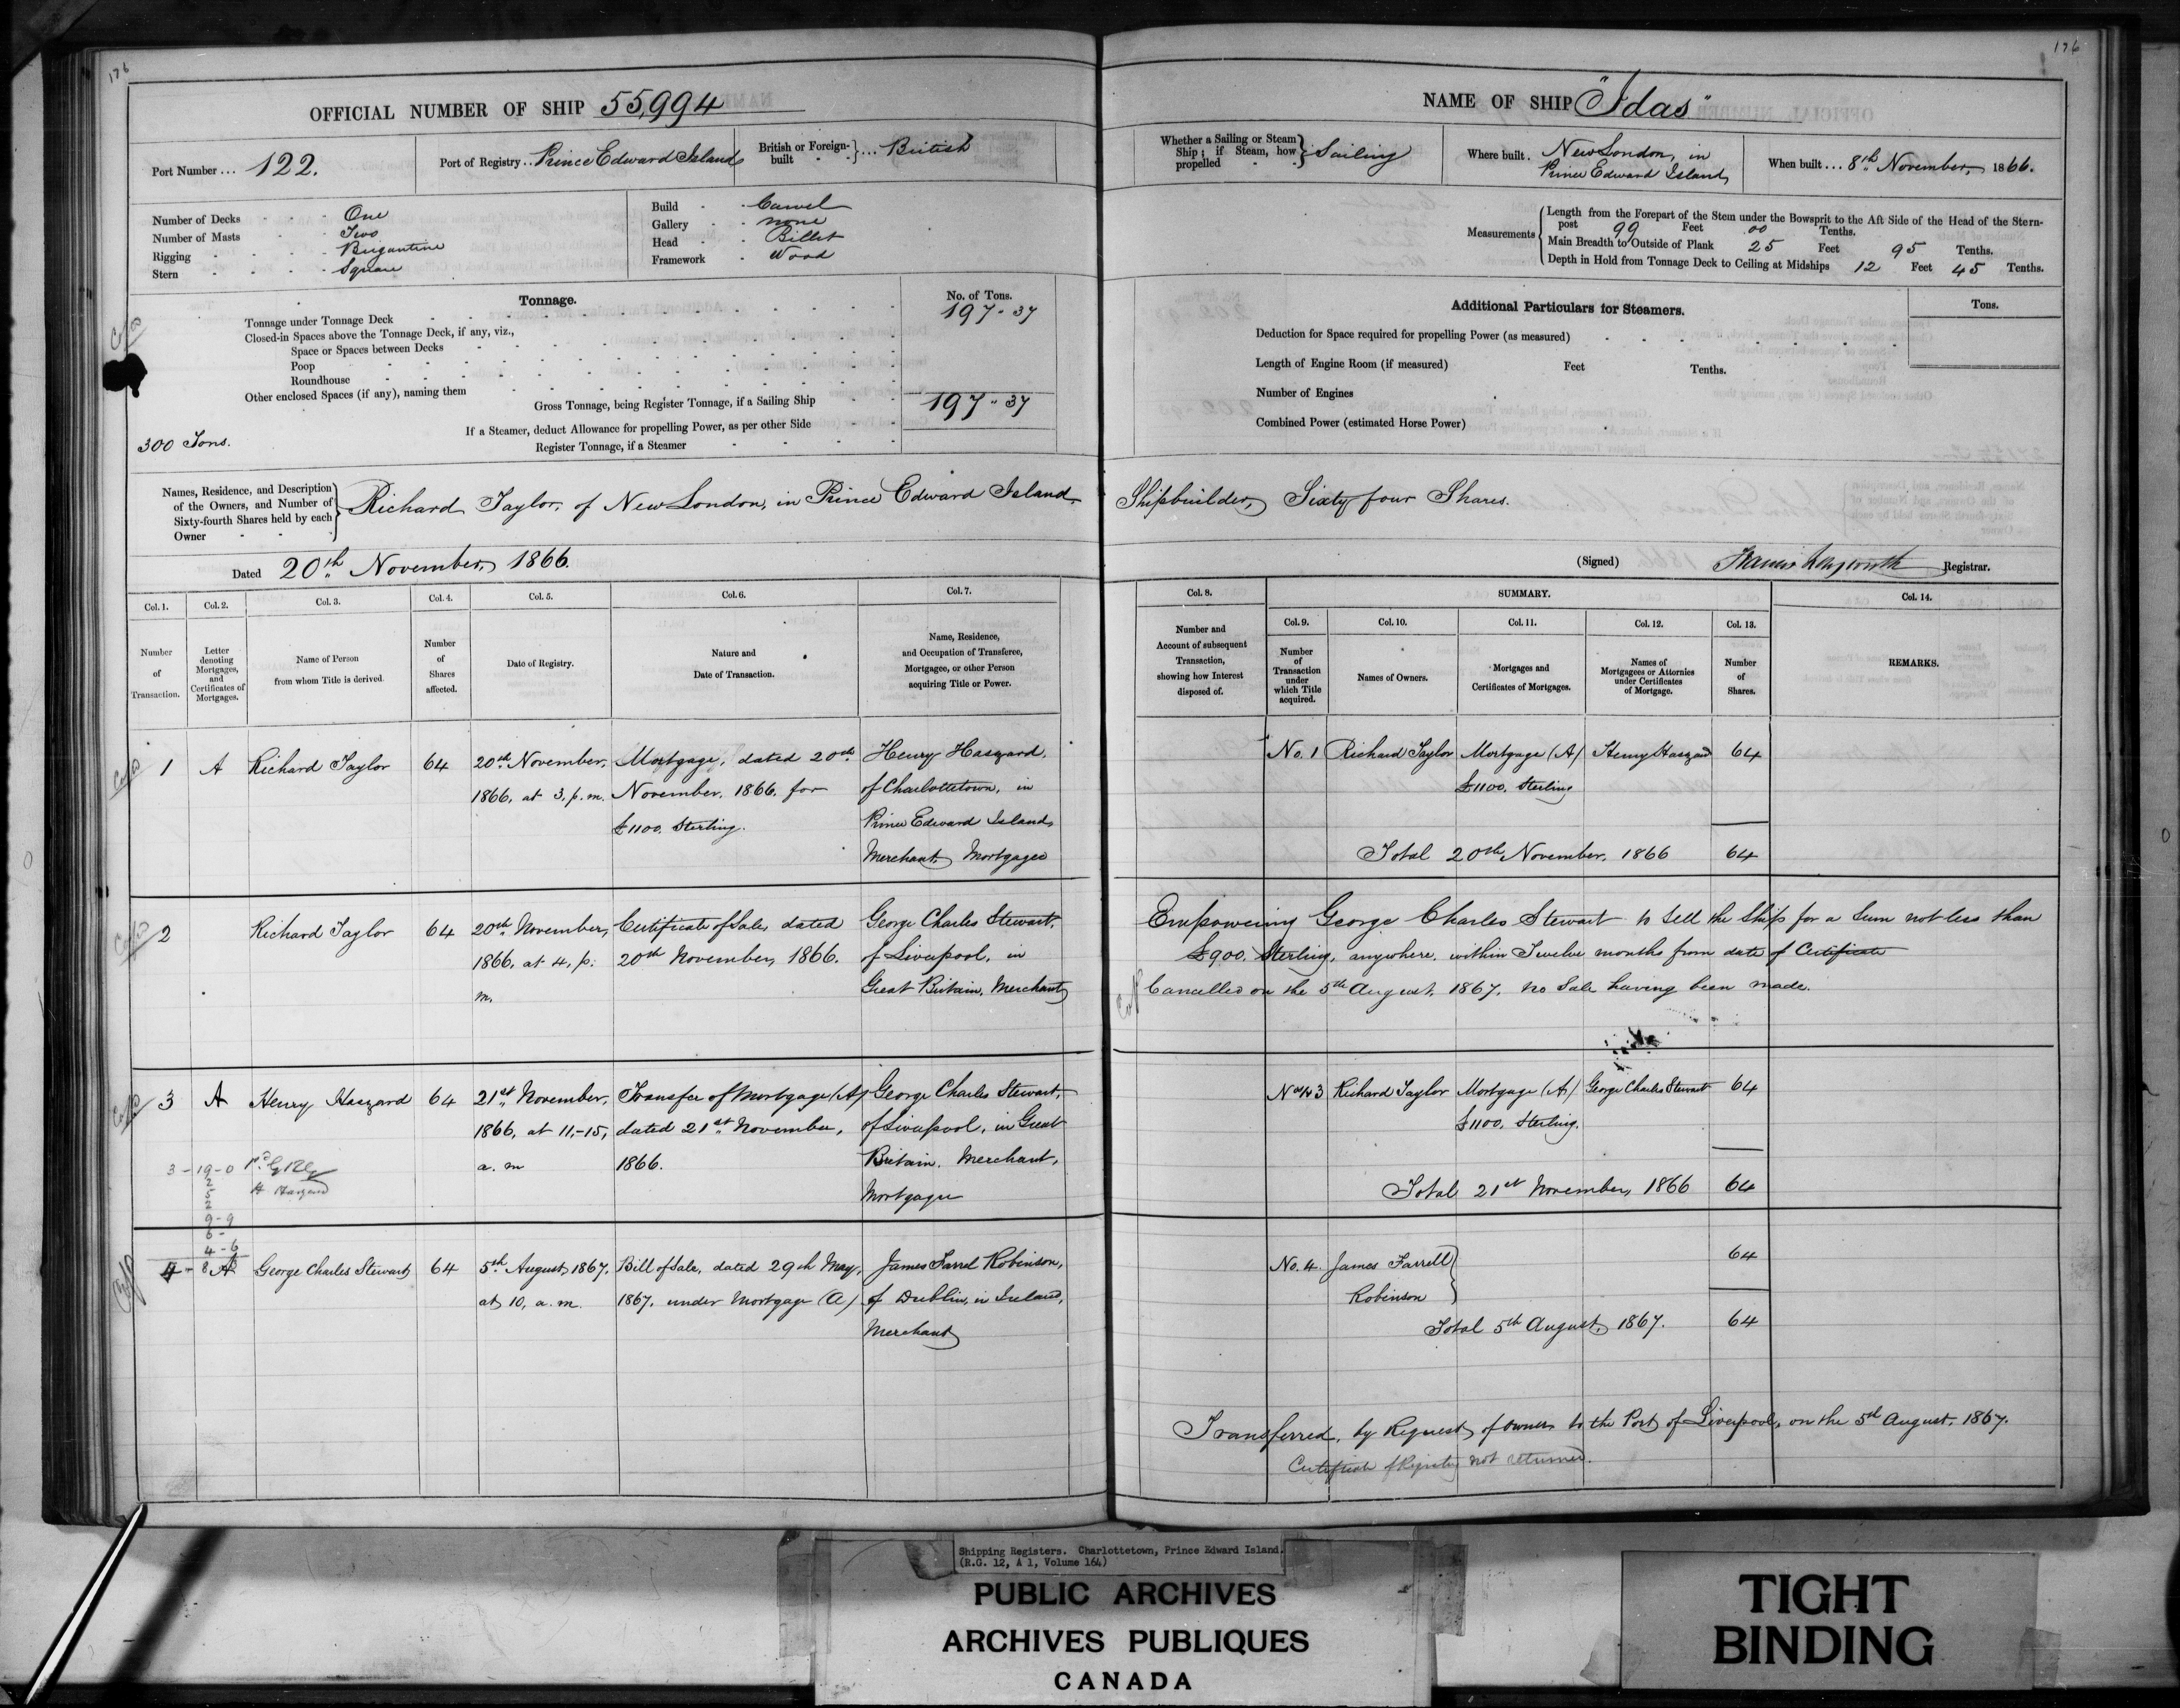 176
OFFICIAL NUMBER OF SHIP 55,994
Port Number ... 122.
Port of Registry .. Prince Edward Island
British or Foreign-built } ... British
Number of Decks One
Number of Masts Two
Rigging Brigantine
Stern Square
Build Carvel
Gallery none
Head Billet
Framework Wood
Tonnage.
No. of Tons.
Tonnage under Tonnage Deck 197 - 37
Closed-in Spaces above the Tonnage Deck, if any, viz.,
Space or Spaces between Decks
Poop
Roundhouse
Other enclosed Spaces (if any), naming them
Gross Tonnage, being Register Tonnage, if a Sailing Ship 197 " 37
If a Steamer, deduct Allowance for propelling Power, as per other Side
300 Tons.
Register Tonnage, if a Steamer
176
NAME OF SHIP "Idas"
Whether a Sailing or Steam Ship; if Steam, how propelled } Sailing
Where built . New London, in
Prince Edward Island,
When built ... 8th November, 1866.
Measurements
Length from the Forepart of the Stem under the Bowsprit to the Aft Side of the Head of the Stern-
post 99 Feet 00 Tenths.
Main Breadth to Outside of Plank 25 Feet 95 Tenths.
Depth in Hold from Tonnage Deck to Ceiling at Midships 12 Feet 45 Tenths.
Additional Particulars for Steamers.
Tons.
Deduction for Space required for propelling Power (as measured)
Length of Engine Room (if measured) Feet Tenths.
Number of Engines
Combined Power (estimated Horse Power)
Names, Residence, and Description
of the Owners, and Number of
Sixty-fourth Shares held by each
Owner
Richard Taylor, of New London, in Prince Edward Island, Shipbuilder, Sixty four Shares.
Dated 20th November, 1866.
(Signed) Registrar.
Col. 1. Col. 2. Col. 3. Col. 4. Col. 5. Col. 6. Col. 7.
Number of Transaction.
Letter denoting Mortgages, and Certificates of Mortgages.
Name of Person from whom Title is derived.
Number of Shares affected.
Date of Registry.
Nature and Date of Transaction.
Name, Residence, and Occupation of Transferee, Mortgagee, or other Person acquiring Title or Power.
Col. 8. SUMMARY. Col. 14.
Col. 9. Col. 10. Col. 11. Col. 12. Col. 13.
Number and Account of subsequent Transaction, showing how Interest disposed of.
Number of Transaction under which Title acquired.
Names of Owners.
Mortgages and Certificates of Mortgages.
Names of Mortgagees or Attornies under Certificates of Mortgage.
Number of Shares.
REMARKS.
1 A Richard Taylor 64 20th November, Mortgage, dated 20th Henry Haszard,
1866, at 3, p.m. November, 1866, for of Charlottetown, in
£1100. Sterling. Prince Edward Island,
Merchant, Mortgagee
No. 1 Richard Taylor Mortgage (A) Henry Haszard 64
£1100. Sterling
Total 20th November, 1866 64
2 Richard Taylor 64 20th November, Certificate of Sale, dated George Charles Stewart,
1866, at 4, p. 20th November, 1866. of Liverpool, in
m. Great Britain, Merchant,
Empowering George Charles Stewart to sell the Ship for a sum not less than
£900. Sterling, anywhere, within Twelve months from date of Certificate
Cancelled on the 5th August, 1867, no Sale having been made.
3 A Henry Haszard 64 21st November, Transfer of Mortgage (A) George Charles Stewart,
1866, at 11,-15, dated 21st November, of Liverpool, in Great
a. m 1866. Britain. Merchant,
Mortgagee
3 - 19 - 0
2
5
2
9 - 9
6 -
4 - 6
8
H Haszard
3 Richard Taylor Mortgage (A) George Charles Stewart 64
£1100. Sterling.
Total 21st November, 1866 64
4 A George Charles Stewart, 64 5th August, 1867, Bill of Sale, dated 29th May, James Farrel Robinson,
at 10, a. m. 1867, under Mortgage (A) of Dublin, in Ireland,
Merchant,
No. 4. James Farrell 64
Robinson
Total 5th August, 1867. 64
Transferred, by Request, of owner to the Port of Liverpool, on the 5th August, 1867.
Certificate of Registry not returned.
Shipping Registers. Charlottetown, Prince Edward Island.
(R.G. 12, A 1, Volume 164)
PUBLIC ARCHIVES
ARCHIVES PUBLIQUES
CANADA
TIGHT
BINDING